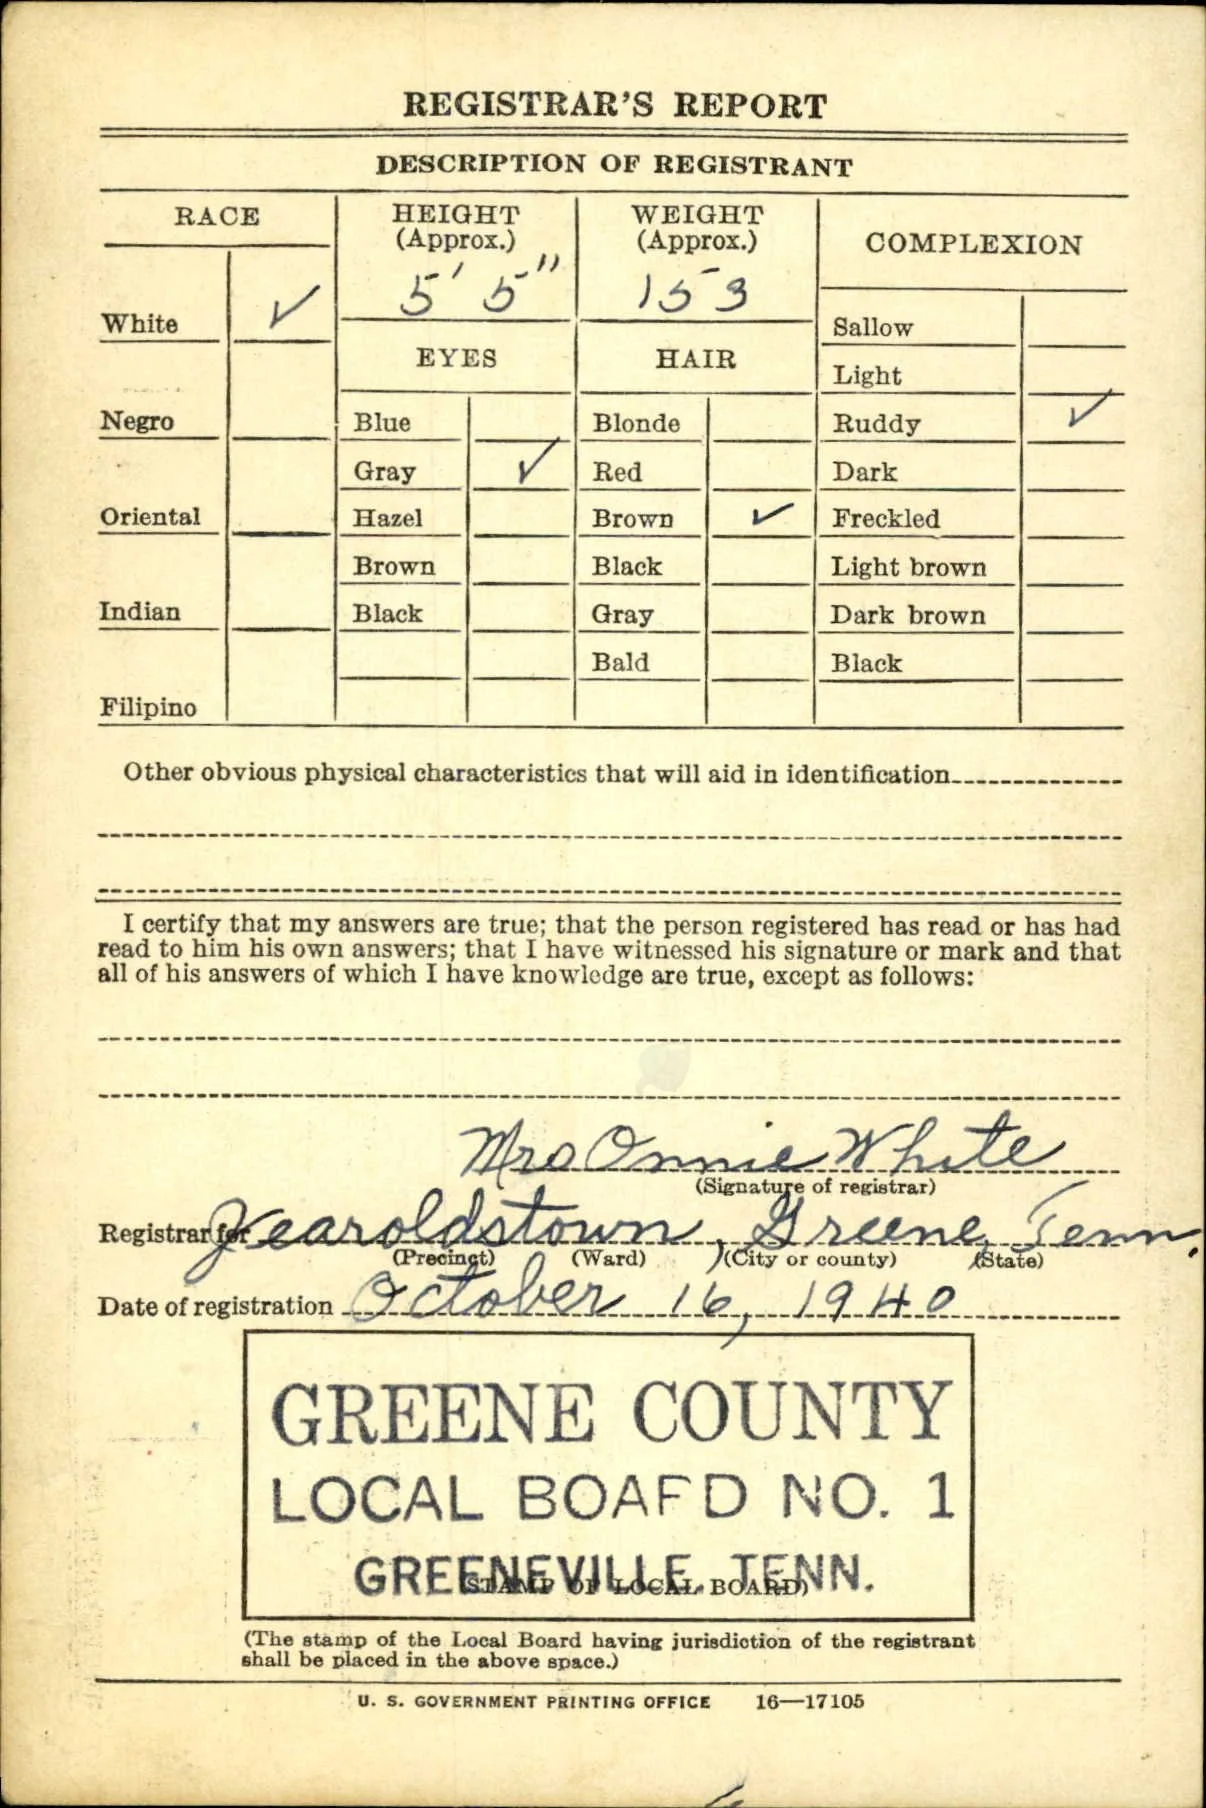 REGISTRAR'S REPORT
DESCRIPTION OF REGISTRANT
RACE
HEIGHT
(Approx.)
WEIGHT
(Approx.)
COMPLEXION
5' 5"
153
White ✓
Sallow
EYES
HAIR
Light
Negro
Blue
Blonde
Ruddy ✓
Gray ✓
Red
Dark
Oriental
Hazel
Brown ✓
Freckled
Brown
Black
Light brown
Indian
Black
Gray
Dark brown
Bald
Black
Filipino
Other obvious physical characteristics that will aid in identification
I certify that my answers are true; that the person registered has read or has had
read to him his own answers; that I have witnessed his signature or mark and that
all of his answers of which I have knowledge are true, except as follows:
Mrs Onnie White
(Signature of registrar)
Registrar for Yearoldstown, Greene, Tenn.
(Precinct) (Ward) (City or county) (State)
Date of registration October 16, 1940
GREENE COUNTY
LOCAL BOARD NO. 1
GREENEVILLE, TENN.
(STAMP OF LOCAL BOARD)
(The stamp of the Local Board having jurisdiction of the registrant
shall be placed in the above space.)
U. S. GOVERNMENT PRINTING OFFICE 16—17105